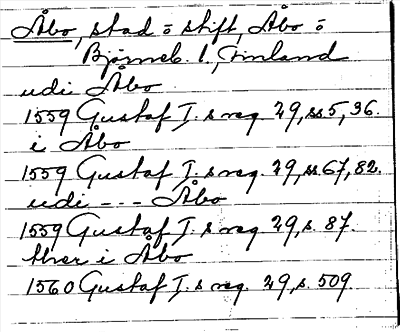 Åbo, stad = stift, Åbo =
Björneb. l., Finland
udi Åbo
1559 Gustaf I. s reg. 29, ss 5, 36.
i Åbo
1559 Gustaf I. s reg. 29, ss 67, 82.
udi - - - Åbo
1559 Gustaf I. s reg. 29, s. 87.
thær i Åbo
1560 Gustaf I. s reg. 29, s. 509.